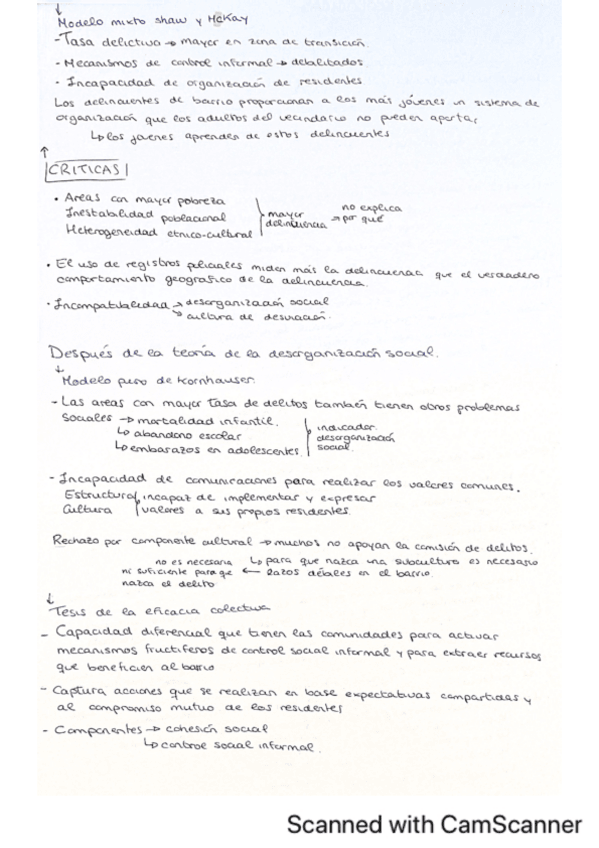 ↓
Modelo mixto shaw y McKay
- Tasa delictiva → mayor en zona de transición.
- Mecanismos de control informal → debilitados
- Incapacidad de organización de residentes.
Los delincuentes de barrio proporcionan a los más jóvenes un sistema de
organización que los adultos del vecindario no pueden aportar
↳ los jovenes aprenden de estos delincuentes
↑
CRITICAS
• Areas con mayor pobreza
Inestabilidad poblacional
Heterogeneidad etnico-cultural
mayor delincuencia → no explica por qué
• El uso de registros policiales miden más la delincuencia que el verdadero
comportamiento geografico de la delincuencia.
• Incompatibilidad → desorganización social
↘ cultura de desviación.
Después de la teoría de la desorganización social.
↓
Modelo puro de Kornhauser.
- Las areas con mayor tasa de delitos también tienen otros problemas
sociales → mortalidad infantil.
↳ abandono escolar
↳ embarazos en adolescentes.
indicador
desorganización
social.
- Incapacidad de comunicaciones para realizar los valores comunes.
Estructura incapaz de implementar y expresar
Cultura valores a sus propios residentes.
Rechazo por componente cultural → muchos no apoyan la comisión de delitos.
↳ para que nazca una subcultura es necesario
lazos débiles en el barrio.
← no es necesaria
ni suficiente para que
nazca el delito
↓
Tesis de la eficacia colectiva
- Capacidad diferencial que tienen las comunidades para activar
mecanismos fructiferos de control social informal y para extraer recursos
que beneficien al barrio
- Captura acciones que se realizan en base expectativas compartidas y
al compromiso mutuo de los residentes
- Componentes → cohesión social
↳ control social informal.
Scanned with CamScanner